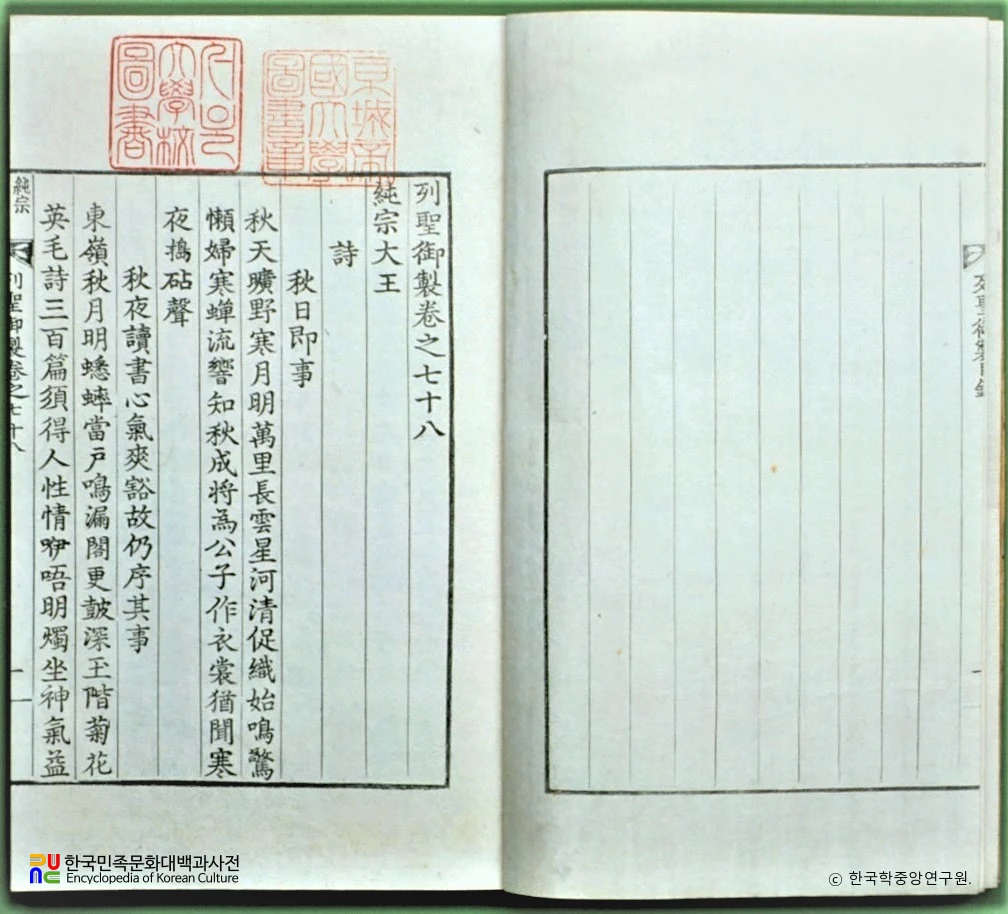 列聖御製目錄
京城帝
國大學
圖書章
서울
大學校
圖書
列聖御製卷之七十八
純宗大王
詩
秋日即事
秋天曠野寒月明萬里長雲星河清促織始鳴驚
懶婦寒蟬流響知秋成將為公子作衣裳猶聞寒
夜搗砧聲
秋夜讀書心氣爽豁故仍序其事
東嶺秋月明蟋蟀當戶鳴漏閣更鼓深玉階菊花
英毛詩三百篇須得人性情咿唔明燭坐神氣益
純宗
列聖御製卷之七十八
一
한국민족문화대백과사전
Encyclopedia of Korean Culture
© 한국학중앙연구원.